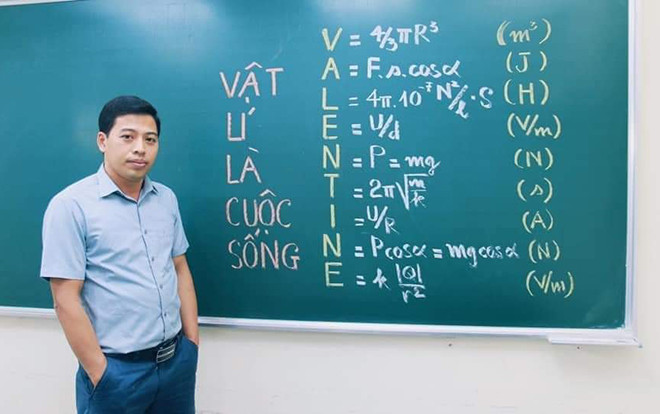 VẬT
LÍ
LÀ
CUỘC
SỐNG
V = 4/3 πR³ (m³)
A = F.s.cosα (J)
L = 4π.10⁻⁷ N²/ℓ . S (H)
E = U/d (V/m)
N = P = mg (N)
T = 2π√(m/k) (s)
I = U/R (A)
N = Pcosα = mgcosα (N)
E = k |Q|/r² (V/m)